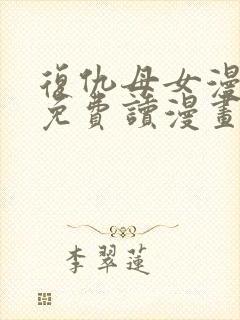 復仇母女漫
免費讀漫畫
李翠蓮